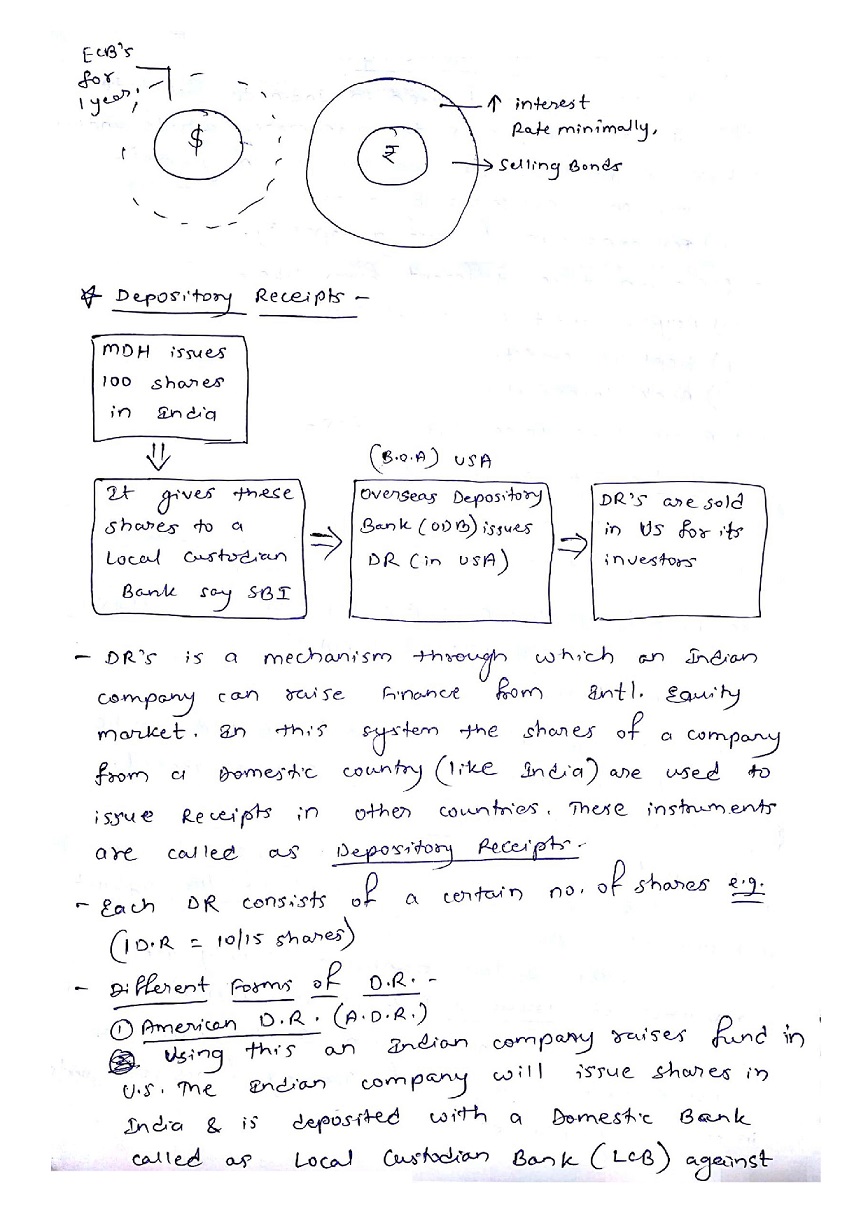 ECB's
for
1 year,
$
₹
↑ interest
Rate minimally,
→ Selling Bonds
☆ Depository Receipts -
MDH issues
100 shares
in India
⇓
It gives these
shares to a
Local Custodian
Bank say SBI
⇒
(B.O.A) USA
Overseas Depository
Bank (ODB) issues
DR (in USA)
⇒
DR's are sold
in US for its
investors
- DR's is a mechanism through which an Indian
company can raise Finance from Intl. Equity
market. In this system the shares of a company
from a Domestic country (like India) are used to
issue Receipts in other countries. These instruments
are called as Depository Receipts.
- Each DR consists of a certain no. of shares e.g.
(1 D.R = 10/15 shares)
- Different Forms of D.R. -
① American D.R. (A.D.R.)
Using this an Indian company raises fund in
U.S. The Indian company will issue shares in
India & is deposited with a Domestic Bank
called as Local Custodian Bank (LCB) against